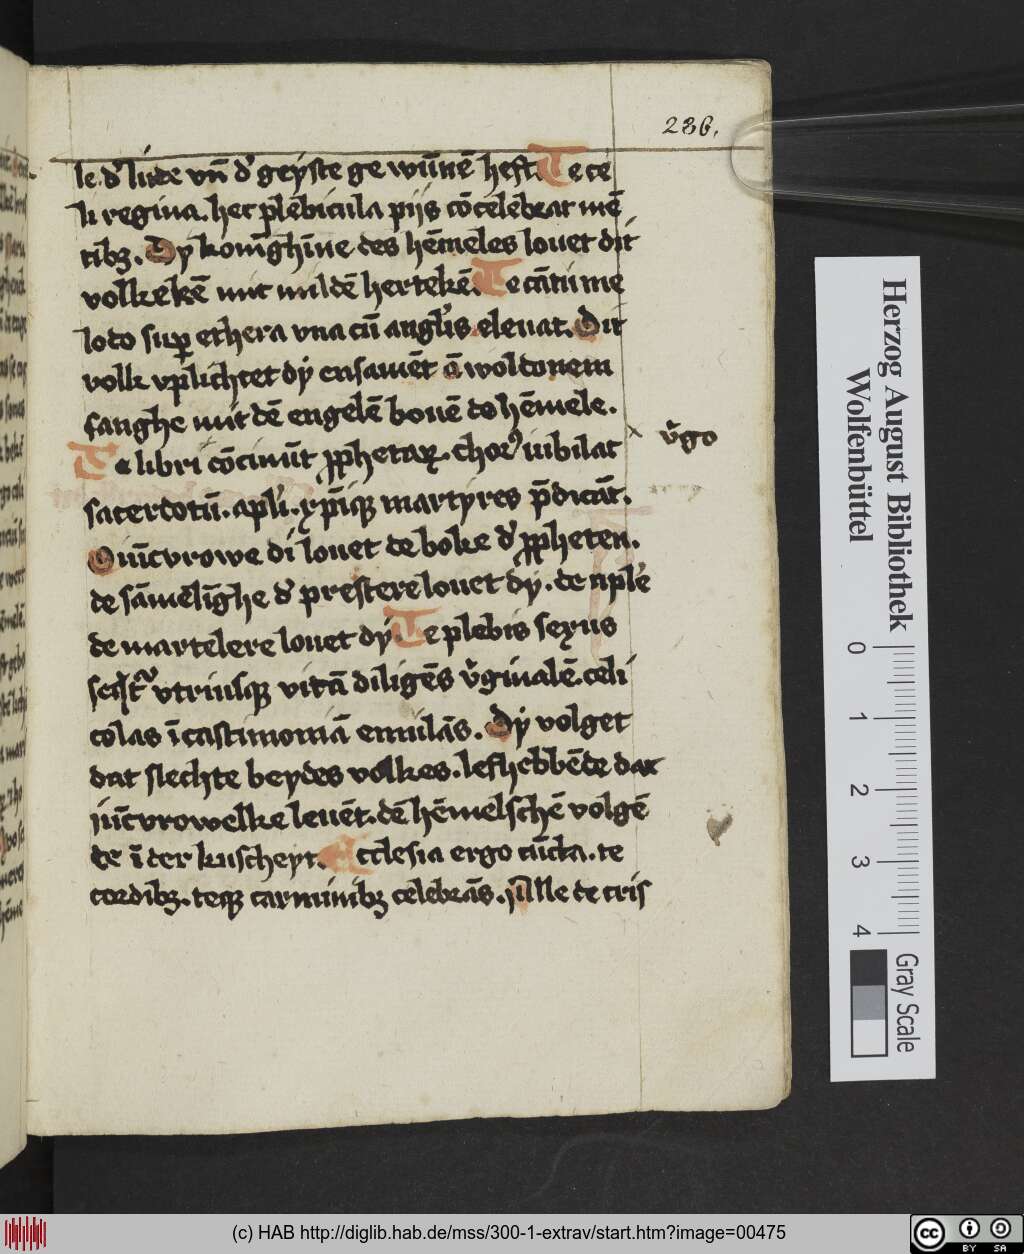 236.
le. d' lude vn̄ d' geyste ge wūnē heft. Te ce
li regina. hec plebicula pijs cōcelebrat mē
tibꝫ. Dy konīghīne des hēmeles louet dit
volkekē mit mildē hertekē. Te cātu me
lodo suꝑ ethera vna cū angl'is eleuat. Dit
volk vplichtet dy ensamēt ā woldonem
sanghe mit dē engelē bouē de hēmele.
Te libri cōcinūt ꝓphetaꝝ. chor' iubilat v'go
sacerdotū. apl'i. xp̄iqꝫ martyres p̄dicāt.
O iūcvrowe di louet de boke d' ꝓpheten.
de sāmelīghe d' prestere louet dy. de aple
de martelere louet dy. Te plebis sexus
seqͥtʳ vtriusqꝫ vitā diligēs v'ginalē. celi
colas ī castimoniā emulās. Dy volget
dat slechte beydes volkes. lefhebbēde dat
iūcvrowelke leuēt. dē hēmelschē volgē
de ī der kuscheyt. Ecclesia ergo cūcta. te
cordibꝫ. teqꝫ carminibꝫ celebrās. Alle de cris
Herzog August Bibliothek
Wolfenbüttel
0 1 2 3 4
Gray Scale
(c) HAB http://diglib.hab.de/mss/300-1-extrav/start.htm?image=00475
cc BY SA